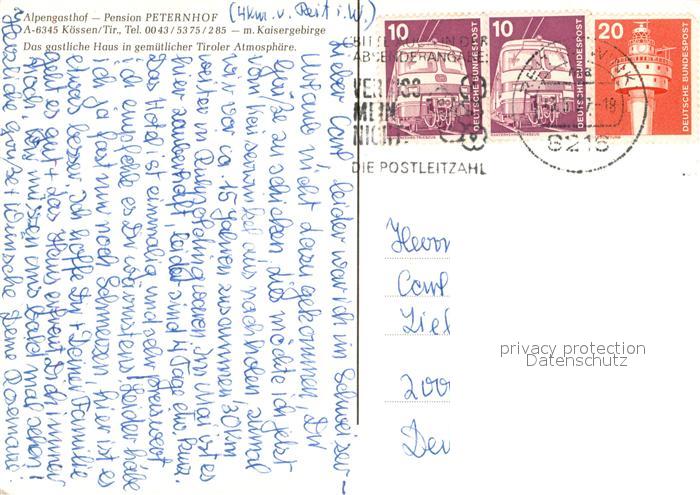 Alpengasthof — Pension PETERNHOF (4km. v. Reit i. W.)
A-6345 Kössen/Tir., Tel. 0043/5375/285 — m. Kaisergebirge
Das gastliche Haus in gemütlicher Tiroler Atmosphäre.
Lieber Carl, leider war ich in Schweizer-
nicht dazu gekommen, Dir
Grüße zu schicken, dies möchte ich jetzt
nachholen zumal
wir vor ca. 15 Jahren zusammen 30km
weiter in waren. Im Mai ist es
hier zauberhaft, leider sind 4 Tage zu kurz.
Das Hotel ist einmalig und sehr preiswert
ich empfehle es Dir wärmstens. Leider habe
ich ja fast nur noch Schmerzen, hier ist es
etwas besser, ich hoffe Dir + Deiner Familie
geht es gut + das Haus erfreut Dich immer
noch, wir müssen uns bald mal sehen!
Herzliche Grüße + Wünsche Deine Rosemarie
10
DEUTSCHE BUNDESPOST
10
DEUTSCHE BUNDESPOST
20
DEUTSCHE BUNDESPOST
BITTE AUCH IN DER
ABSENDERANGABE:
VERGISS
MEIN
NICHT
DIE POSTLEITZAHL
8216
Herrn
Carl
Ziel
200
Deu
privacy protection
Datenschutz